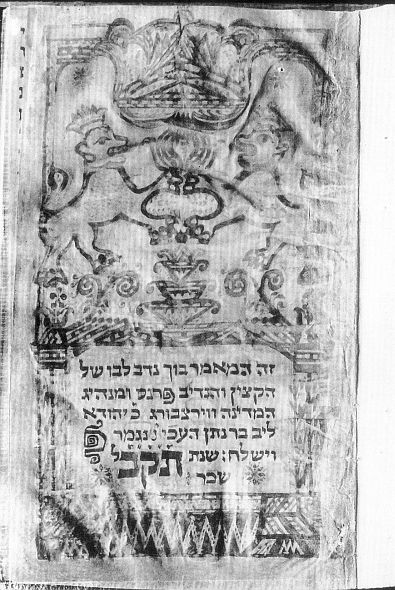 זה הממאמרבוך נדב לבו של
הקצין והנדיב פרנס ומנהיג
המדינה ווירצבורג כ׳ יהודא
ליב בר נתן העכי נגמר פ
וישלח: שנת תקב ל
שכר: